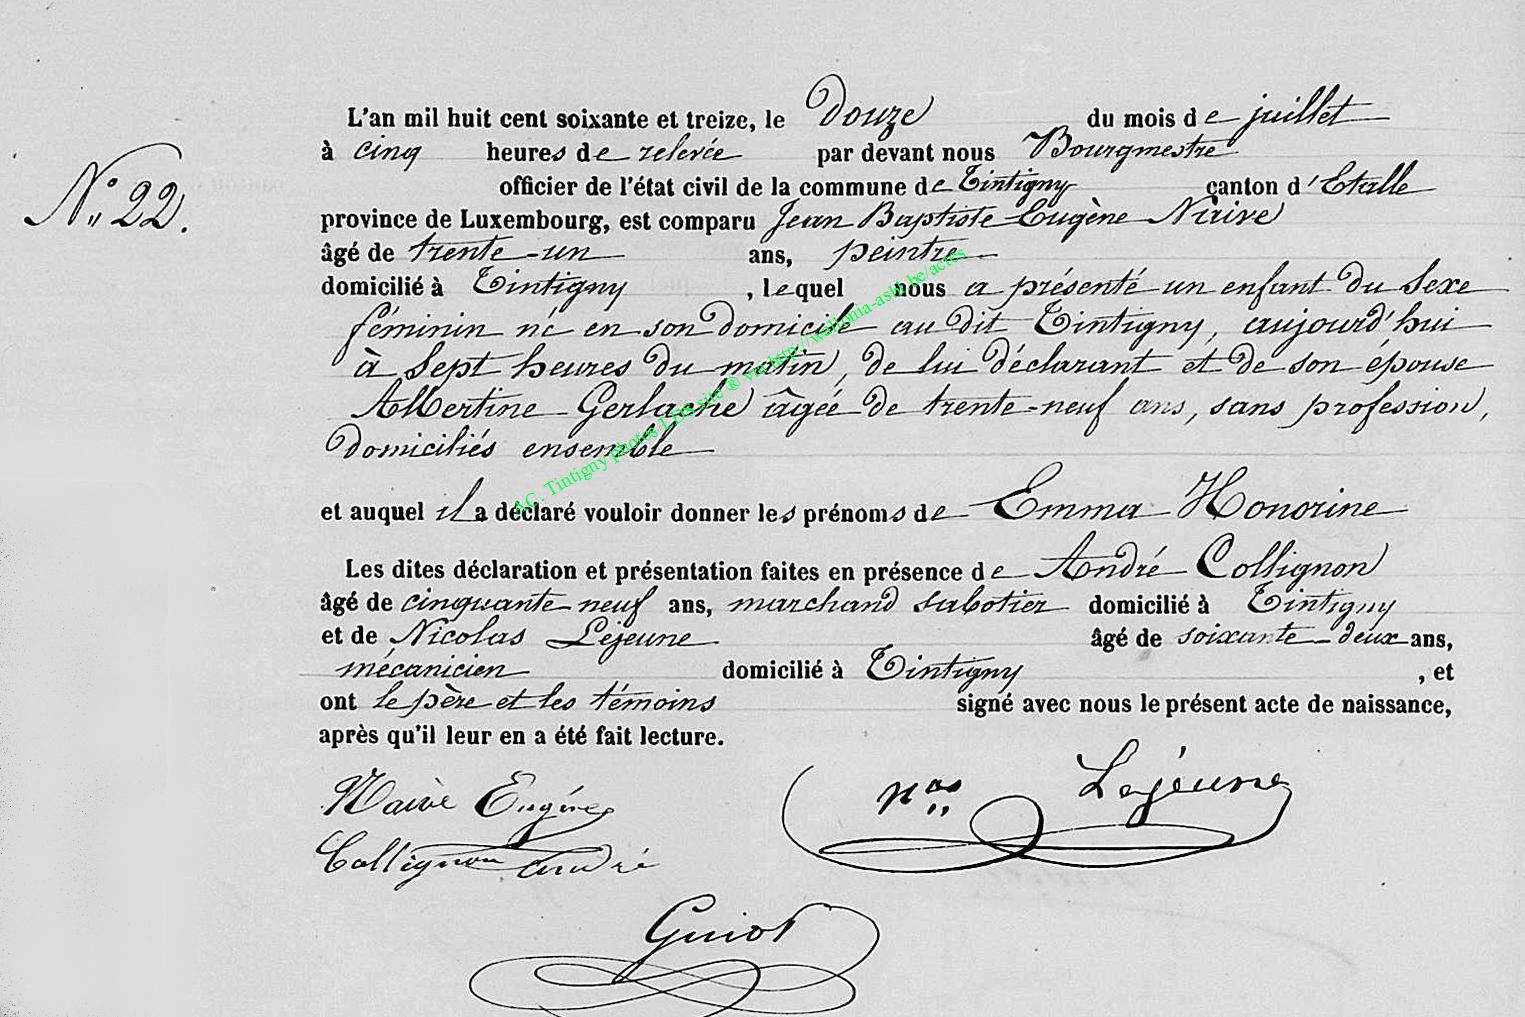 L'an mil huit cent soixante et treize, le Douze du mois de juillet
à cinq heures de relevée par devant nous Bourgmestre
N° 22.
officier de l'état civil de la commune de Tintigny canton d'Etalle
province de Luxembourg, est comparu Jean Baptiste Eugène Naive
âgé de trente-un ans, peintre
domicilié à Tintigny, lequel nous a présenté un enfant du sexe
féminin né en son domicile au dit Tintigny, aujourd'hui
à sept heures du matin, de lui déclarant et de son épouse
Albertine Gerlache âgée de trente-neuf ans, sans profession,
domiciliés ensemble
et auquel il a déclaré vouloir donner les prénoms de Emma Honorine
Les dites déclaration et présentation faites en présence de André Collignon
âgé de cinquante neuf ans, marchand sabotier domicilié à Tintigny
et de Nicolas Lejeune âgé de soixante-deux ans,
mécanicien domicilié à Tintigny, et
ont le père et les témoins signé avec nous le présent acte de naissance,
après qu'il leur en a été fait lecture.
Naive Eugène
Nas Lejeune
Collignon André
Guiot
AC. Tintigny photos LDS site ® via http://wallonia-asbl.be/actes